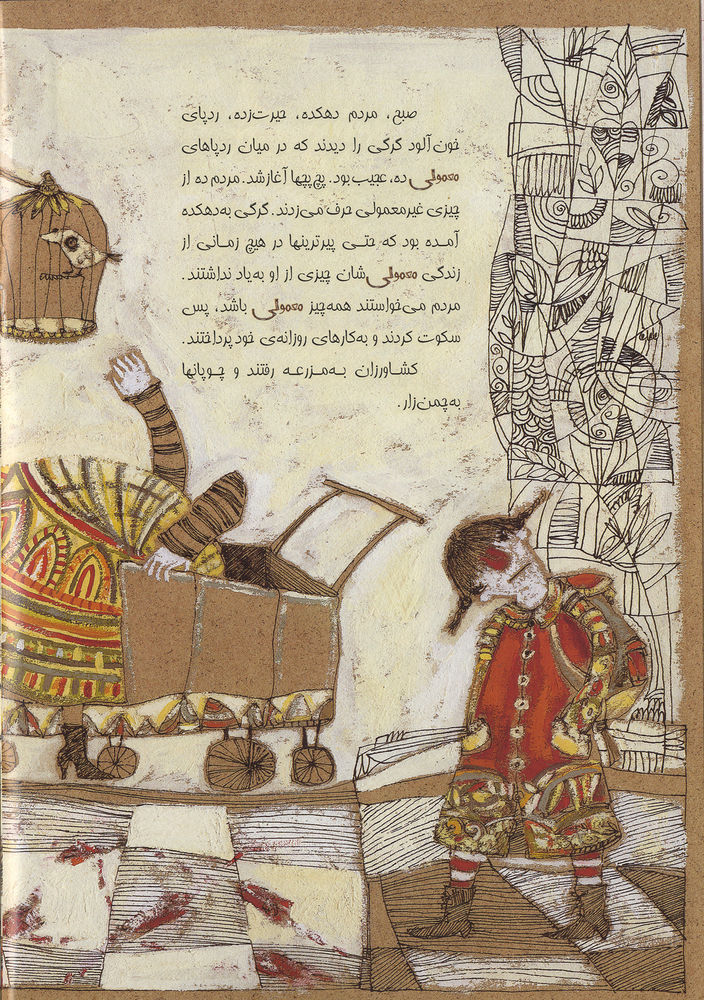 صبح، مردم دهکده، حیرت‌زده، ردپای
خون‌آلود گرگی را دیدند که در میان ردپاهای
معمولی ده، عجیب بود. پچ‌پچها آغاز شد. مردم ده از
چیزی غیرمعمولی حرف می‌زدند. گرگی به‌دهکده
آمده بود که حتی پیرترینها در هیچ زمانی از
زندگی معمولی‌شان چیزی از او به‌یاد نداشتند.
مردم می‌خواستند همه‌چیز معمولی باشد، پس
سکوت کردند و به‌کارهای روزانه‌ی خود پرداختند.
کشاورزان به‌مزرعه رفتند و چوپانها
به‌چمن‌زار.